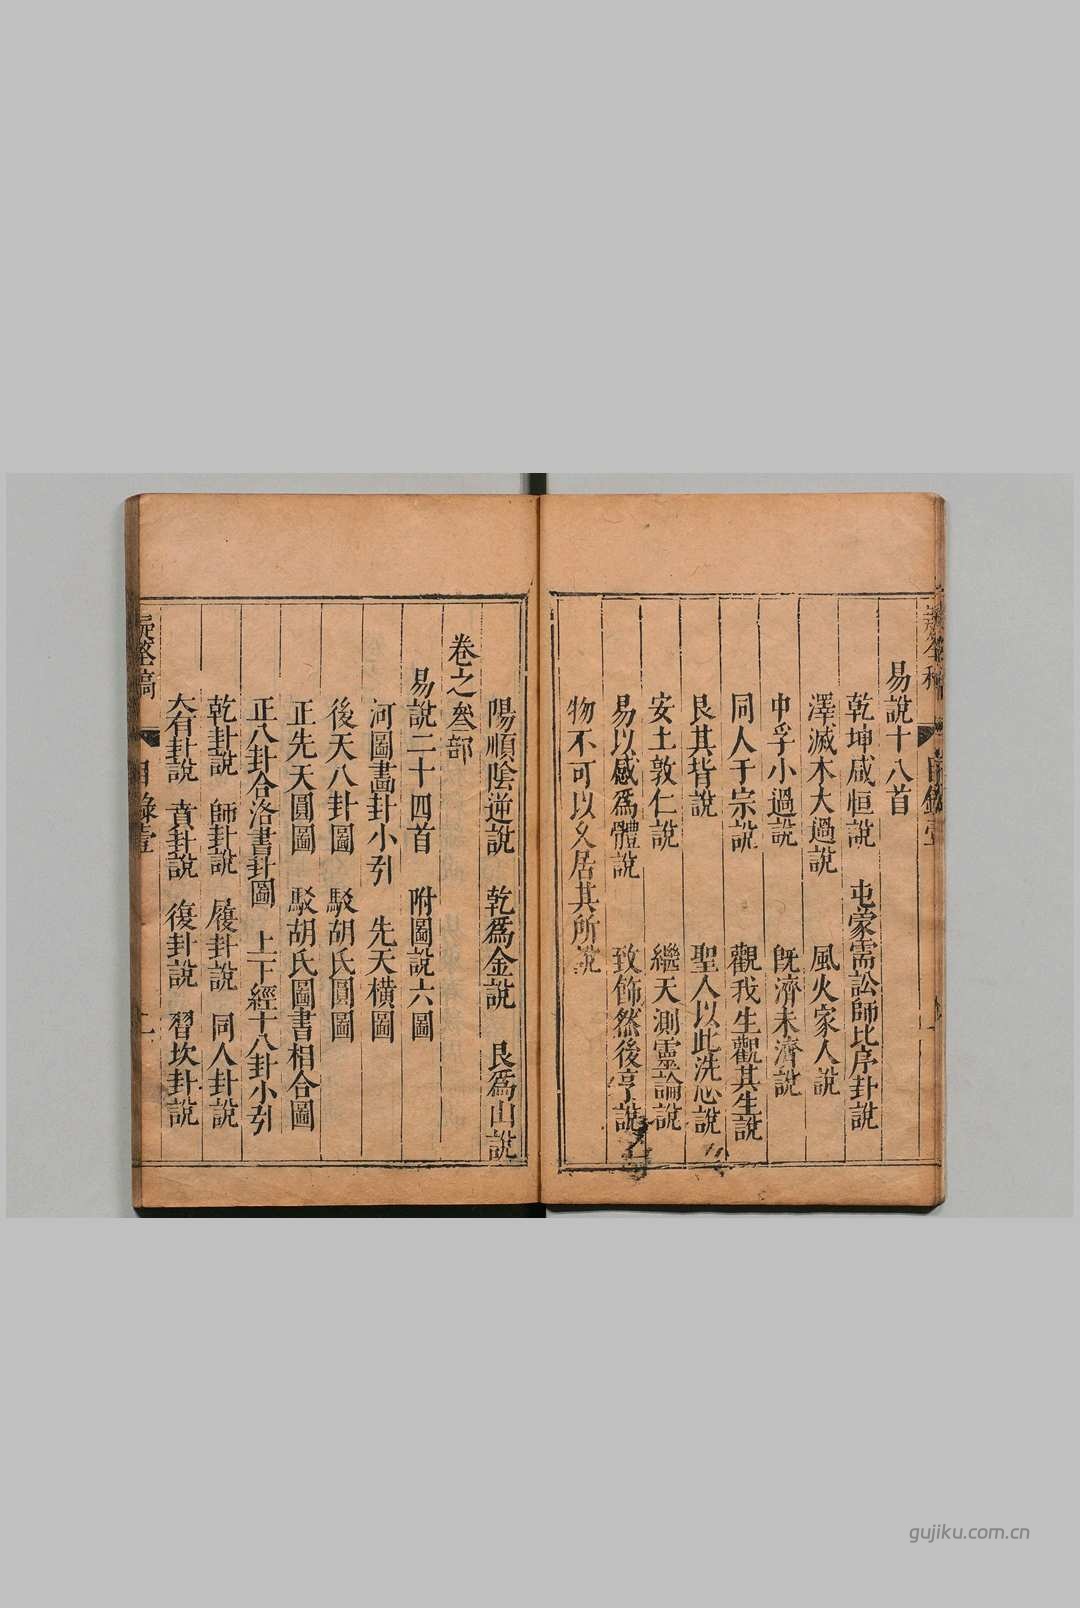 易說十八首
乾坤咸恒說 屯蒙需訟師比序卦說
澤滅木大過說 風火家人說
中孚小過說 既濟未濟說
同人于宗說 觀我生觀其生說
艮其背說 聖人以此洗心說
安土敦仁說 繼天測靈論說
易以感爲體說 致飾然後亨說
物不可以久居其所說
陽順陰逆說 乾爲金說 艮爲山說
卷之叄部
易說二十四首 附圖說六圖
河圖畵卦小引 先天橫圖
後天八卦圖 駁胡氏圓圖
正先天圓圖 駁胡氏圖書相合圖
正八卦合洛書卦圖 上下經十八卦小引
乾卦說 師卦說 履卦說 同人卦說
大有卦說 賁卦說 復卦說 習坎卦說
稿 目錄壹
gujiku.com.cn